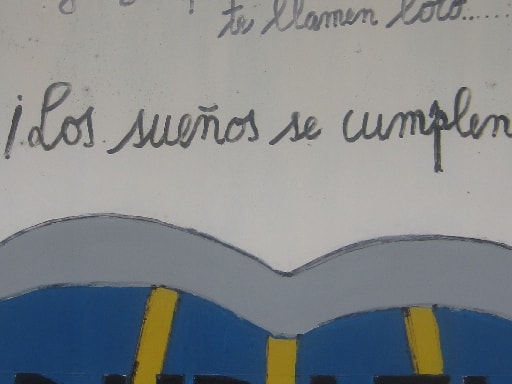 te llamen loco......
¡Los sueños se cumplen